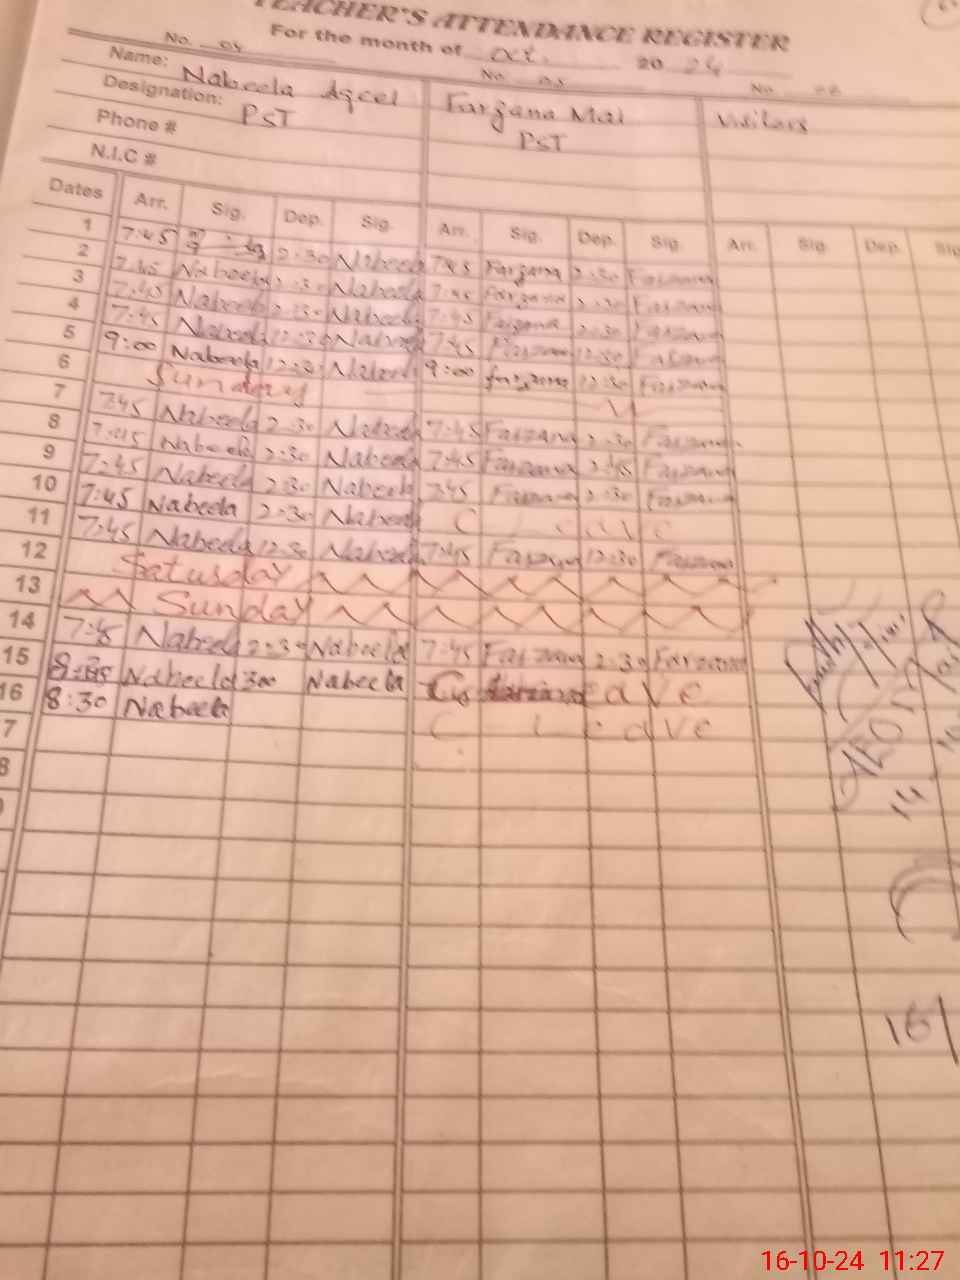 TEACHER'S ATTENDANCE REGISTER
For the month of Oct. 2024
No. 04 No. 05 No.
Name: Nabeela Aqeel Farzana Mai Visitors
Designation: PST PST
Phone #
N.I.C #
Dates Arr. Sig. Dep. Sig. Arr. Sig. Dep. Sig. Arr. Sig. Dep. Sig
1 7:45 2:30 Nabeela 7:45 Farzana 2:30 Farzana
2 7:45 Nabeela 2:30 Nabeela 7:45 Farzana 2:30 Farzana
3 7:45 Nabeela 2:30 Nabeela 7:45 Farzana 2:30 Farzana
4 7:45 Nabeela 12:30 Nabeela 7:45 Farzana 12:30 Farzana
5 9:00 Nabeela 12:30 Nabeela 9:00 farzana 12:30 Farzana
6 Sunday
7 7:45 Nabeela 2:30 Nabeela 7:45 Farzana 2:30 Farzana
8 7:45 Nabeela 2:30 Nabeela 7:45 Farzana 2:45 Farzana
9 7:45 Nabeela 2:30 Nabeela 7:45 Farzana 2:30 Farzana
10 7:45 Nabeela 2:30 Nabeela C / leave
11 7:45 Nabeela 12:30 Nabeela 7:45 Farzana 12:30 Farzana
12 Saturday
13 Sunday
14 7:45 Nabeela 2:30 Nabeela 7:45 Farzana 2:30 Farzana
15 Nabeela 3:00 Nabeela eave
16 8:30 Nabeela C leave
7
8
AEO
16/
16-10-24 11:27